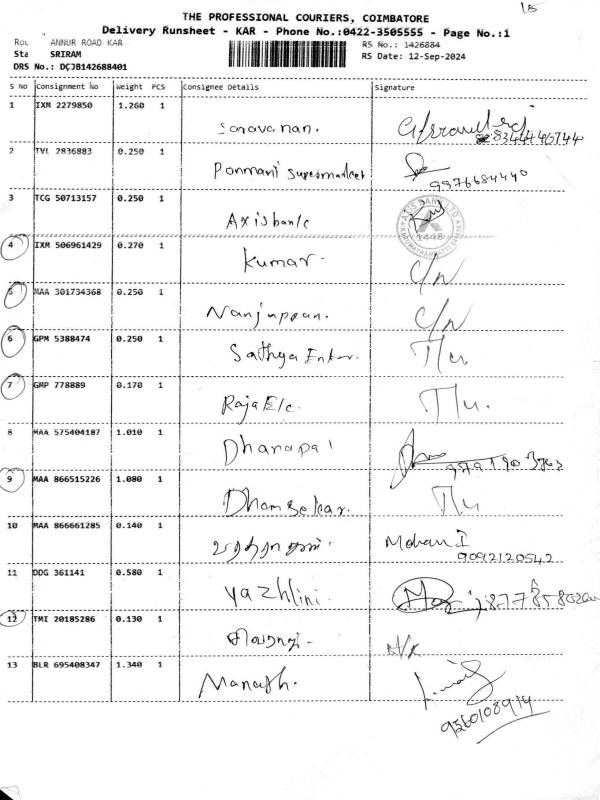 15
THE PROFESSIONAL COURIERS, COIMBATORE
Delivery Runsheet - KAR - Phone No.:0422-3505555 - Page No.:1
Rou ANNUR ROAD KAR RS No.: 1426884
Sta SRIRAM RS Date: 12-Sep-2024
DRS No.: DCJB142688401
S No Consignment No Weight PCS Consignee Details Signature
1 IXM 2279850 1.260 1
Saravanan. 8344446744
2 TVL 2836883 0.250 1
Ponmani Supermarket 9976684440
3 TCG 50713157 0.250 1
Axis bank AXIS BANK LTD 1448
4 IXM 506961429 0.270 1
Kumar. C/N
5 MAA 301734368 0.250 1
Nanjappan. C/N
6 GPM 5388474 0.250 1
Sathya Enter.
7 GMP 778889 0.170 1
Raja E/c.
8 MAA 575404187 1.010 1
Dhanapal
9 MAA 866515226 1.080 1
Dhansekar.
10 MAA 866661285 0.140 1
வரதராஜன். Mohan I
9092120542
11 DDG 361141 0.580 1
Yazhlini.
12 TMI 20185286 0.130 1
சிவராஜ்.
13 BLR 695408347 1.340 1
Manash.
9360108914